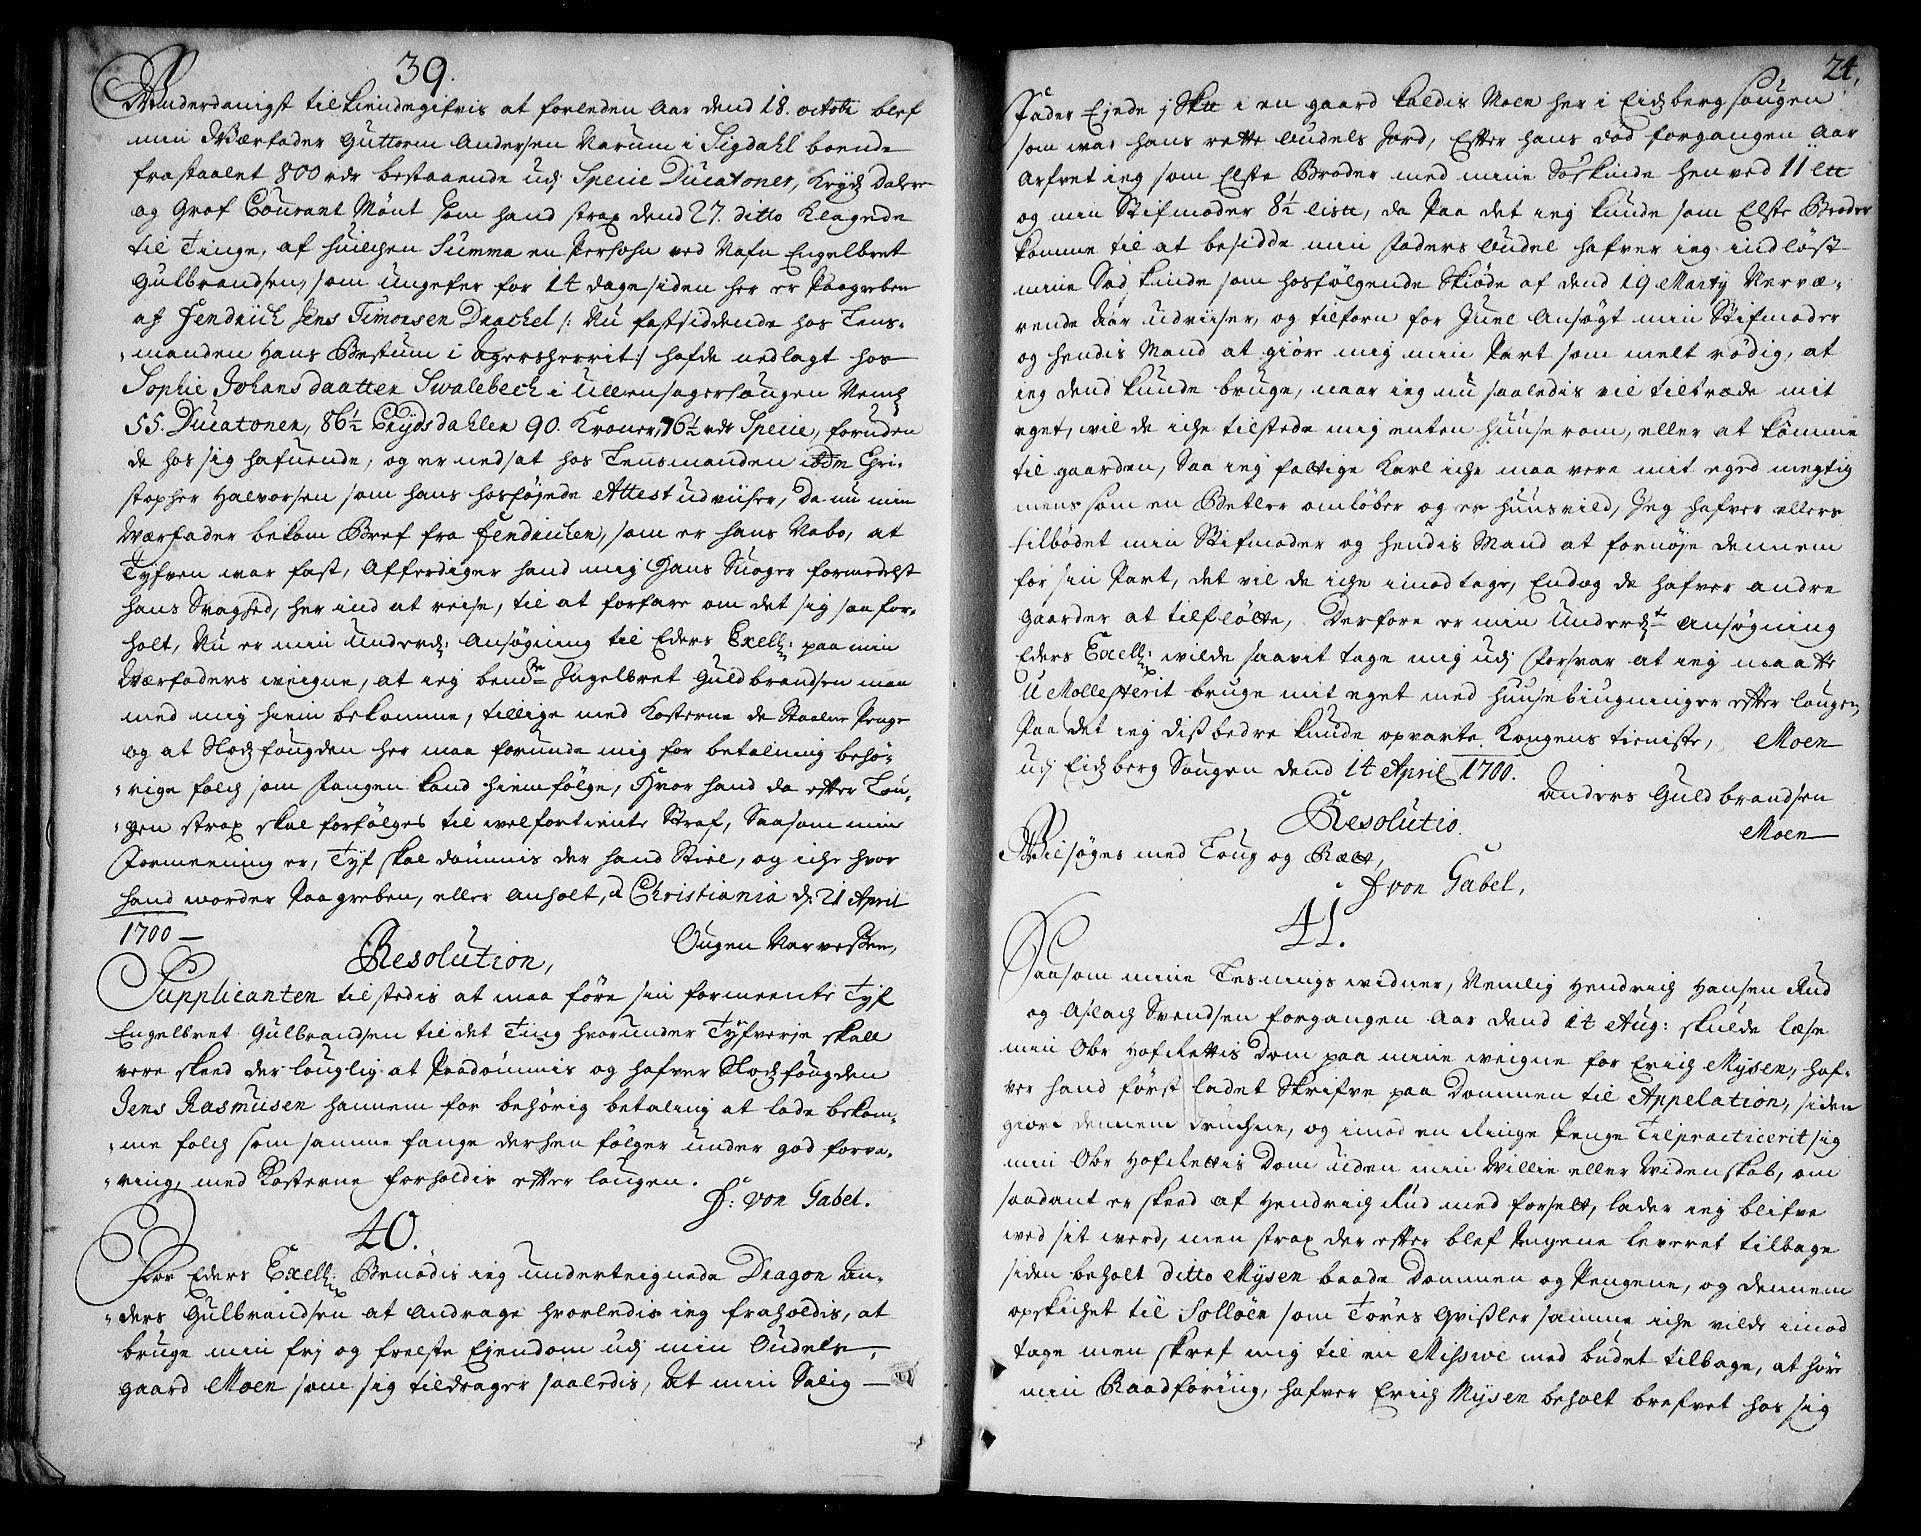 39.
Underdanigst tilkiendegifvis at forleden Aar dend 18. octobr blef
min Værfader Guttorm Andersen Narum i Sigdahl boende
frastaalet 800 rdr bestaaende udj Specie Ducatoner, Krydz Daler
og Grof Courant Mønt som hand strax dend 27. ditto Klagede
til Tinge, af huilchen Summa en Persohn ved Nafn Engelbret
Gulbrandsen, som ungefer for 14 dage siden her er Paagreben
af Fendrich Jens Timonsen Drachel /: Nu fastsiddende hos Lens-
manden Hans Bestum i Agersherrit :/ hafde nedlagt hos
Sophie Johansdaatter Swalebech i Ullensagersougen Neml:
55. Ducatoner, 86½ Crydsdahler 90. Kroner, 76½ rdr Specie, foruden
de hos sig hafuende, og er nedsat hos Lensmanden ibdm Chri-
stopher Halvorsen som hans hosføjede Attest udviiser, Da nu min
Værfader bekom Bref fra Fendrichen, som er hans Nabo, at
Tyfven war fast, Afferdiger hand mig Hans Suoger formedelst
hans Svaghed, her ind at reise, til at forfare om det sig saa for-
holt, Nu er min underd: Ansøgning til Eders Excell: paa min
Værfaders weigne, at ieg bemte Ingelbret Guldbrandsen maa
med mig hiem bekomme, tillige med Kosterne de Staalne Penge
og at Slodzfougden her maa forunde mig for betalning behø-
rige folch som fangen kand hiemfølge, Hvor hand da efter Lou-
gen strax skal forfølges til welfortiente Straf, Saasom min
formeening er, Tyf skal dømmis der hand Stiel, og iche hvor
hand worder Paagreben, eller anholt, Christiania d: 21 April
1700 —
Ougen Narvessen,
Resolution,
Supplicanten tilstedis at maa føre sin formeente Tyf
Engelbret Gulbrandsen til det Ting hvorunder Tyfverje skall
vere skeed der louglig at Paadømmis og hafver Slodzfougden
Jens Rasmusen hannem for behørig betaling at lade bekom-
me folch som samme fange derhen følger under god forva-
ring, med Kosterne forholdis efter lougen.
F: von Gabel.
40.
For Eders Excell: Benødis ieg underteignede Dragon An-
ders Gulbrandsen at andrage hvorledis ieg fraholdis, at
bruge min frj og frelste Ejendom udj min Oudels
gaard Moen som sig tildrager saaledis, At min Salig
24.
Fader Ejede j Skt i en gaard kaldis Moen her i Eidzberg sougen
som war hans rette Oudels Jord, Efter hans død forgangen Aar
Arfvet ieg som Elste Broder med mine Søskinde henved 11 lt
og min Stifmoder 8½ list, da Paa det ieg kunde som Elste Broder
komme til at besidde min faders Oudel hafver ieg indløst
mine Søskinde som hosfølgende Skiøde af dend 19 Marty Nervæ-
rende Aar udviiser, og tilforn for Juel Ansøgt min Stifmoder
og hendis Mand at giøre mig min Part som melt rødig, at
ieg dend kunde bruge, naar ieg nu saaledis vil tiltræde mit
eget, vil de iche tilstede mig enten huuserom, eller at komme
til gaarden, Saa ieg fattige Karl iche maa vere mit eged megtig
mens som en Betler omløber og er huusvild, Jeg hafver ellers
tilbødet min Stifmoder og hendis Mand at fornøje dennem
for sin Part, det vil de iche imodtage, Endog de hafver andre
gaarder at tilfløtte, Derfore er min underdt Ansøgning
Eders Excell: wilde saavit tage mig udj forsvar at ieg maatte
u Mollesterit bruge mit eget med huusebiugninger efter lougen,
Paa det ieg disbedre kunde opvarte Kongens tieniste, Moen
udj Eidzberg Sougen dend 14 April 1700.
Anders Guldbrandsen
Moen
Resolutio.
Wilsøges med Loug og Rætt,
F von Gabel,
41.
Saasom mine Lesnings widner, Nemlig Hendrich Hansen Rud
og Aslach Svendsen forgangen Aar dend 14 Aug: skulde læse
min Obr Hofrettis Dom paa mine weigne for Erich Mysen, haf-
ver hand først ladet Skrifve paa Dommen til Appelation, siden
giort dennem druchne, og imod en ringe Penge Tilpracticerit sig
min Obr Hofrettis Dom uden min Willie eller Widenskab, om
saadant er skeed af Hendrich Rud med forsett, lader ieg blifve
ved sit werd, men strax der efter blef Pengene leveret tilbage
siden beholt ditto Mysen baade Dommen og Pengene, og dennem
opskichet til Solløen som Tores Gvisler samme iche vilde imod
tage men skref mig til en Missive med budet tilbage, at høre
min Raadføring, hafver Erich Mysen beholt brefvet hos sig